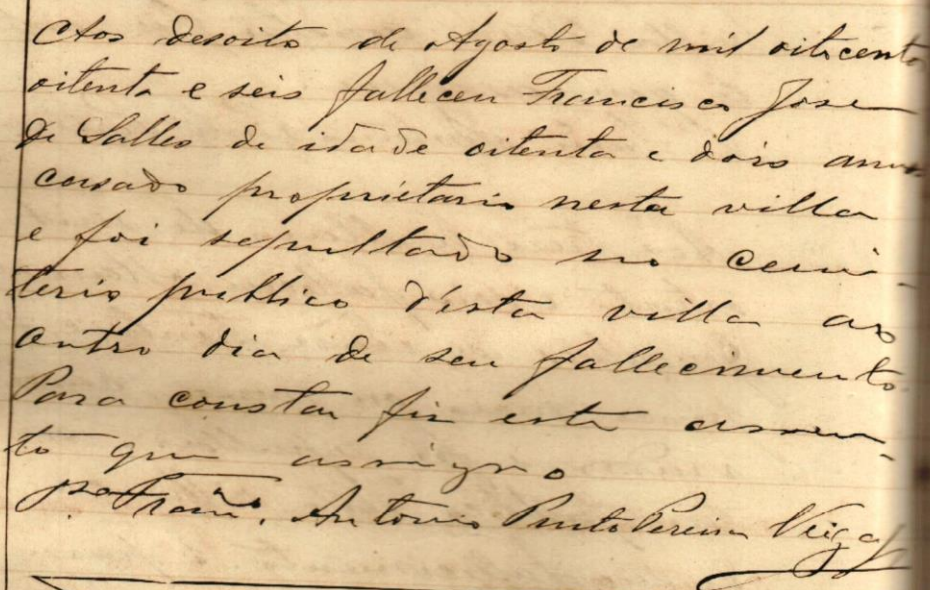 Aos desoito de Agosto de mil oitocento
oitenta e seis falleceu Francisco Jose
de Salles de idade oitenta e dois annos
casado proprietario nesta villa
e foi sepultado no cemi-
terio publico d'esta villa ao
outro dia de seu fallecimento
Para constar fiz este assen-
to que assigno
Antonio Pinto Pereira Veiga